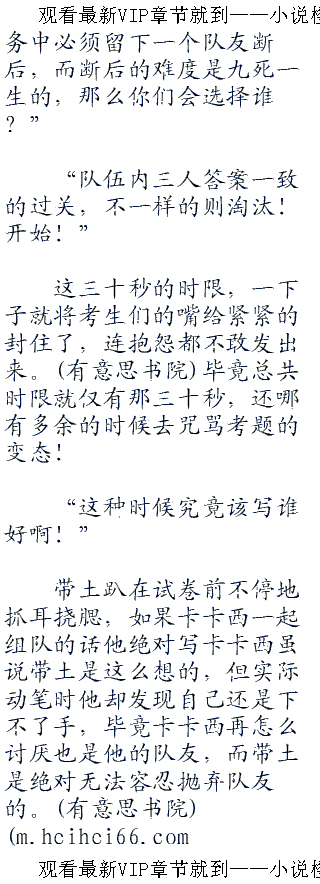 观看最新VIP章节就到——小说
务中必须留下一个队友断
后，而断后的难度是九死一
生的，那么你们会选择谁
？”
“队伍内三人答案一致
的过关，不一样的则淘汰！
开始！”
这三十秒的时限，一下
子就将考生们的嘴给紧紧的
封住了，连抱怨都不敢发出
来。(有意思书院)毕竟总共
时限就仅有那三十秒，还哪
有多余的时候去咒骂考题的
变态！
“这种时候究竟该写谁
好啊！”
带土趴在试卷前不停地
抓耳挠腮，如果卡卡西一起
组队的话他绝对写卡卡西虽
说带土是这么想的，但实际
动笔时他却发现自己还是下
不了手，毕竟卡卡西再怎么
讨厌也是他的队友，而带土
是绝对无法容忍抛弃队友
的。(有意思书院)
(m.hcihci66.com
观看最新VIP章节就到——小说